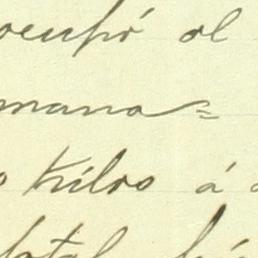 ocupó al
mana=
o Kilos á
total